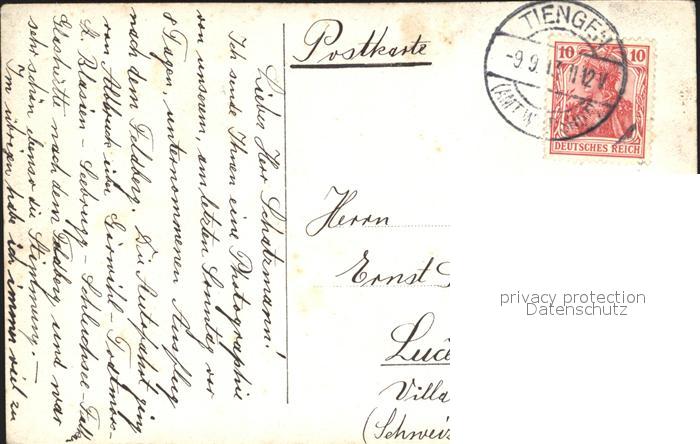 Postkarte
TIENGEN
-9.9.13.11-12V.
(AMT W
10 10
DEUTSCHES REICH
Lieber Herr Schatzmann!
Ich sende Ihnen eine Photographie
von unserem, am letzten Sonntag vor
8 Tagen, unternommenen Ausflug
nach dem Feldberg. Die Autofahrt ging
von Albbruck über Görwihl - Todtmoos-
St. Blasien - Seebrugg - Schluchsee - Falkau
Glashütte nach dem Feldberg und war
sehr schön ebenso die Stimmung. -
Im übrigen habe ich immer viel zu
Herrn
Ernst
Luce
Villa
(Schweiz
privacy protection
Datenschutz